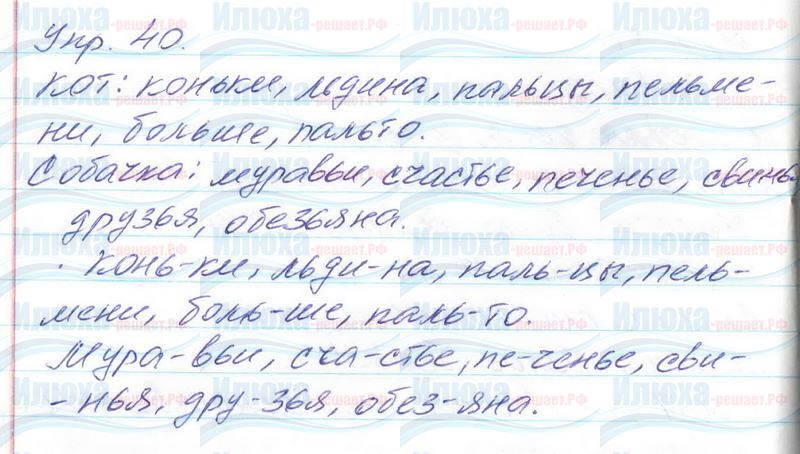 Упр. 40.
Кот: коньки, льдина, пальцы, пельме-
ни, больше, пальто.
Собачка: муравьи, счастье, печенье, свинья
друзья, обезьяна.
. Конь-ки, льди-на, паль-цы, пель-
мени, боль-ше, паль-то.
Мура-вьи, сча-стье, пе-ченье, сви-
- нья, дру-зья, обез-яна.
Илюха-решает.РФ